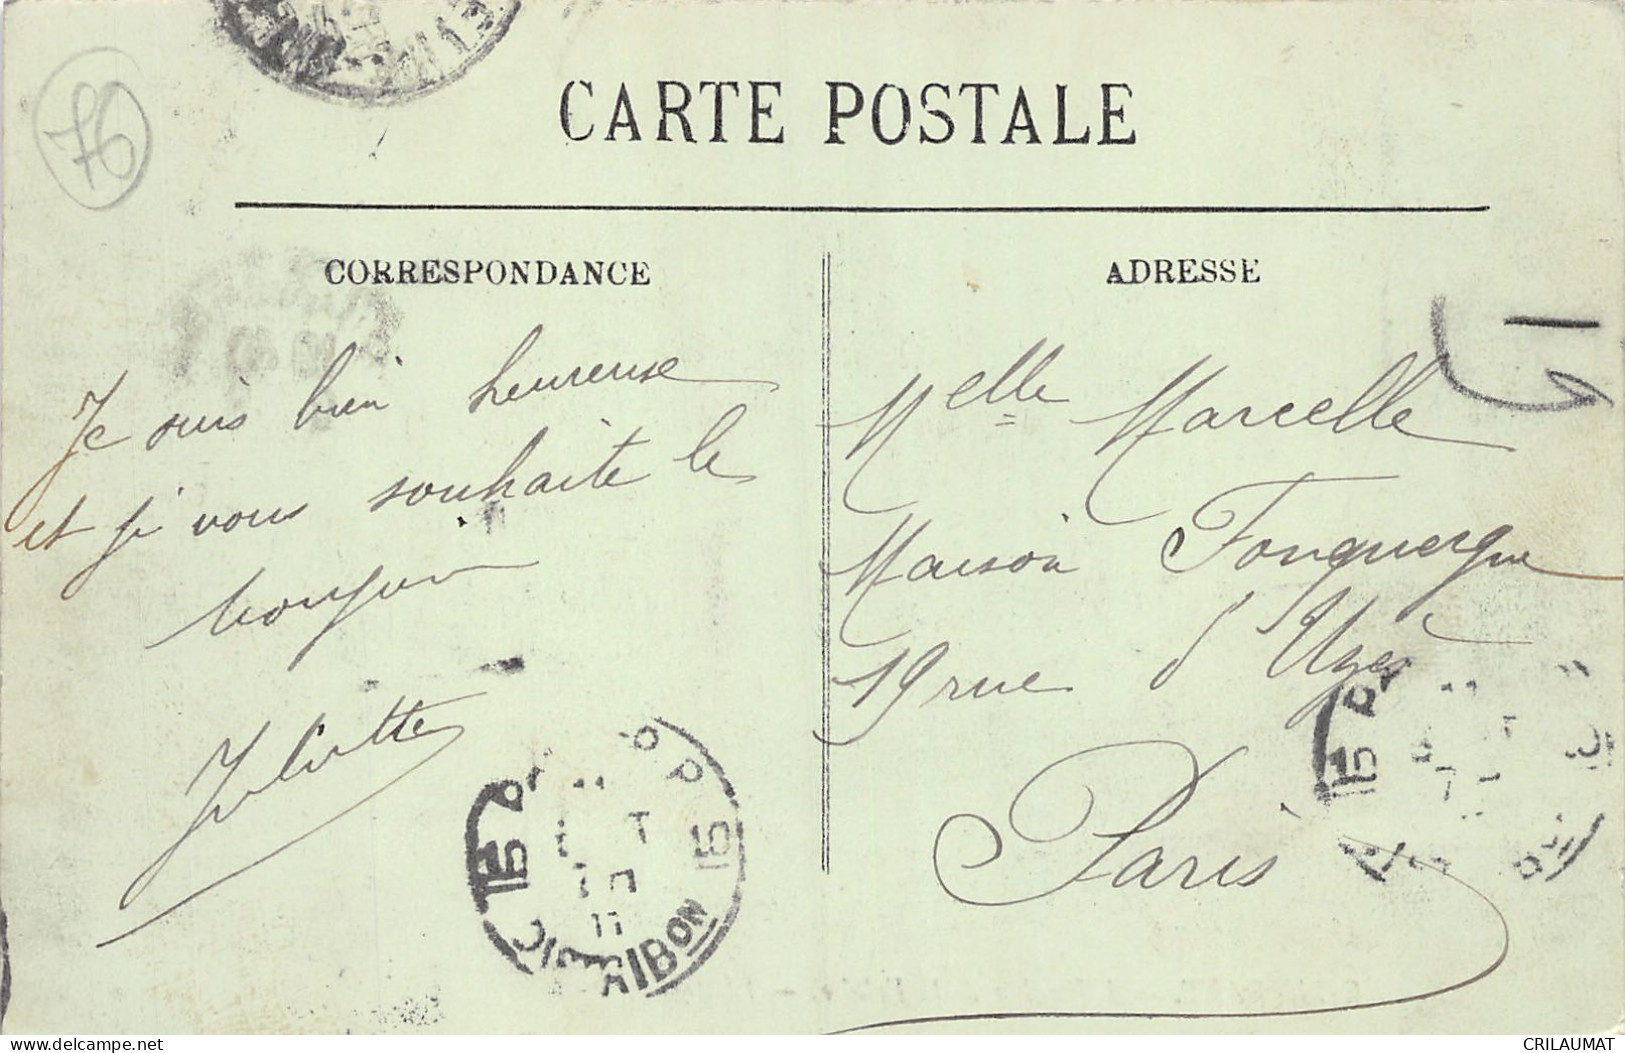 76
CARTE POSTALE
CORRESPONDANCE
ADRESSE
Je suis bien heureuse
et je vous souhaite le
bonjour
Juliette
Melle Marcelle
Maison Fonquergne
19 rue d'Uzès
Paris
15
15
DISTRIBON
15
www.delcampe.net
CRILAUMAT